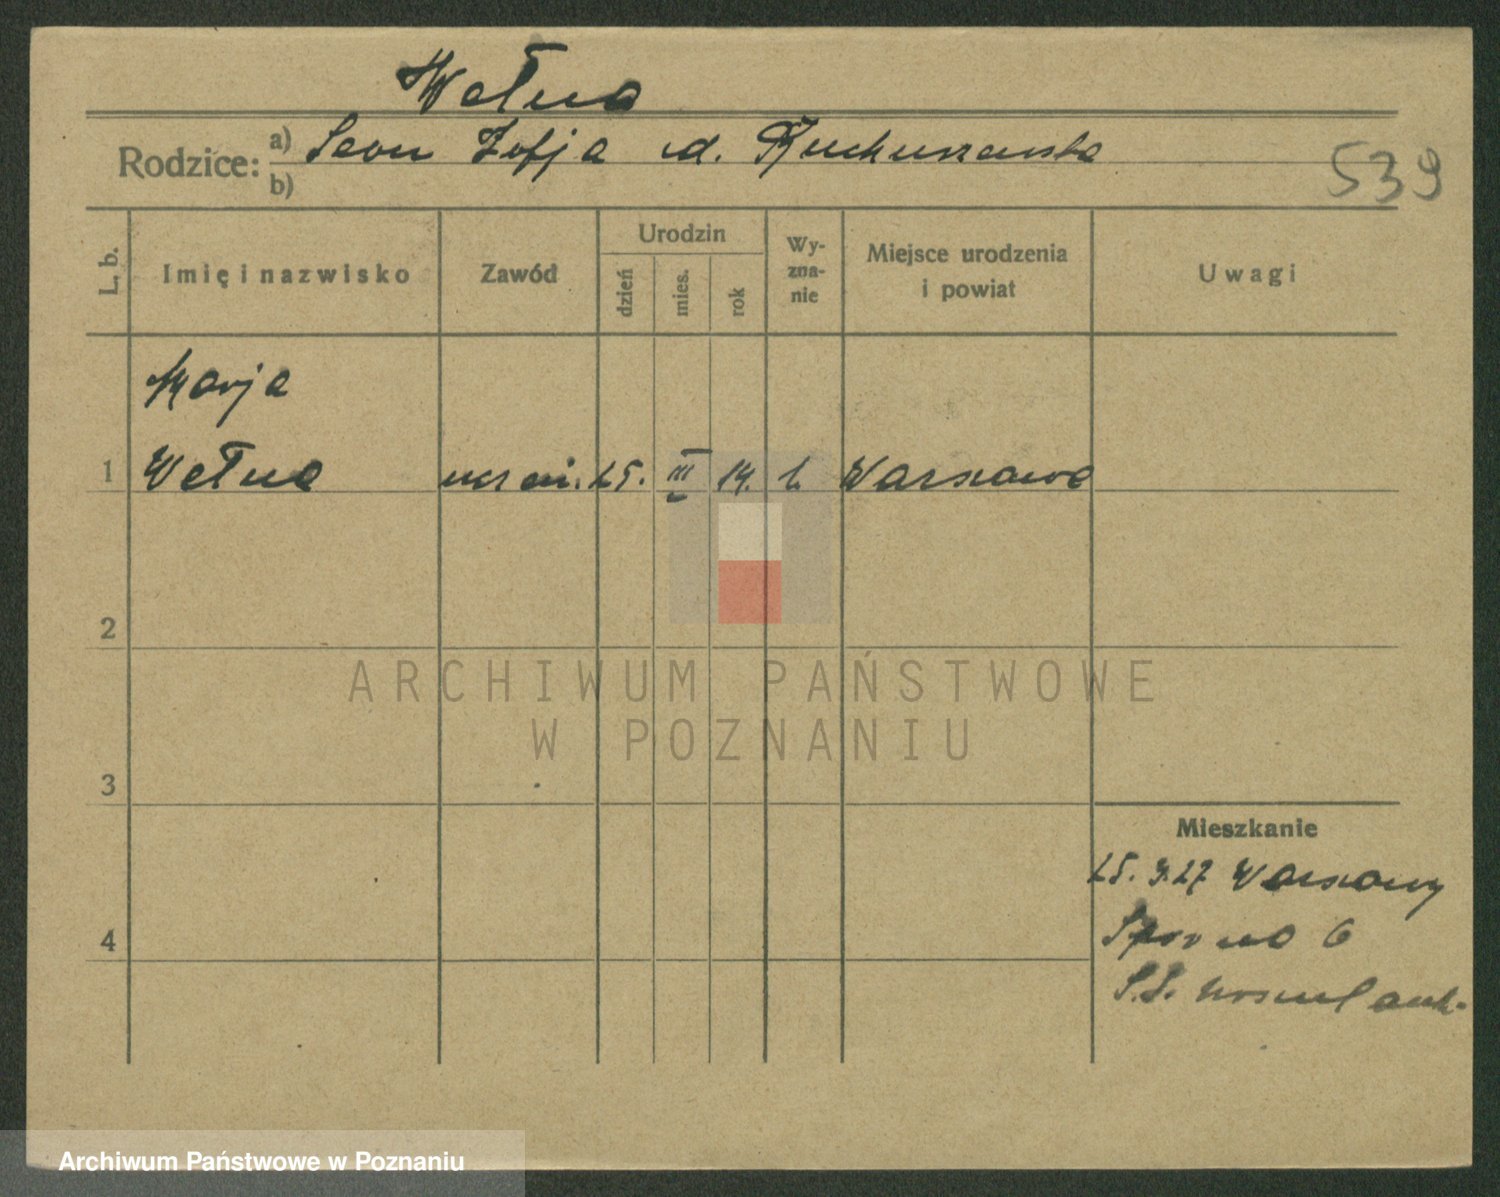 Wełna
Rodzice: a) Leon Zofja d.
b)
539
L. b.
Imię i nazwisko
Zawód
Urodzin
dzień
mies.
rok
Wy-
zna-
nie
Miejsce urodzenia
i powiat
Uwagi
Marja
1 Wełna uczen. 25. III 14. k. Warszawa
2
3
4
Mieszkanie
25. 9.27 Warszawy
6
S.S.
ARCHIWUM PAŃSTWOWE
W POZNANIU
Archiwum Państwowe w Poznaniu